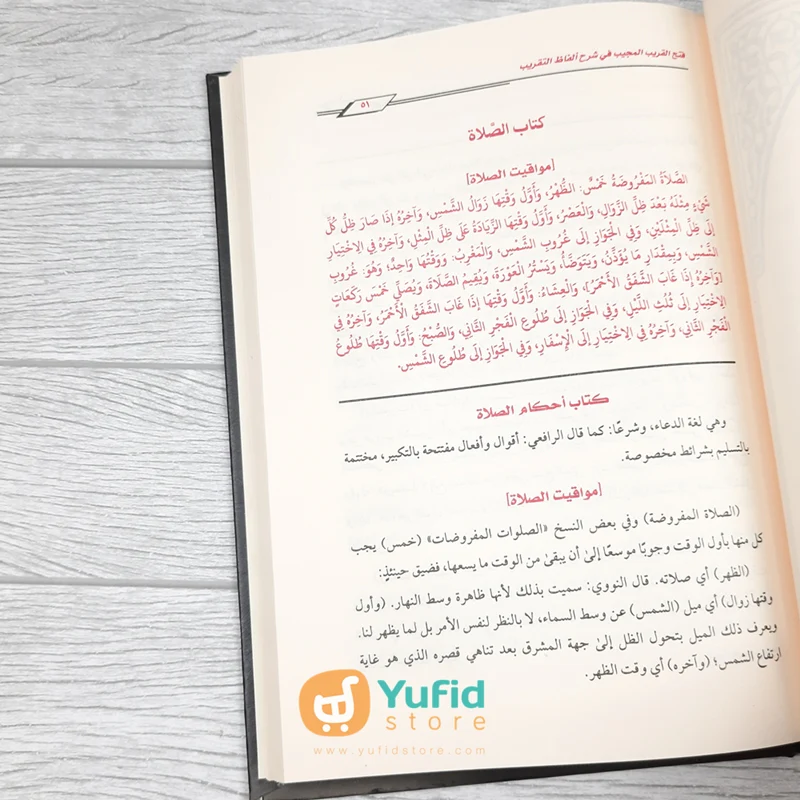 فتح القريب المجيب في شرح ألفاظ التقريب
٥١
كتاب الصَّلاة
[مواقيت الصلاة]
الصَّلَاةُ المَفْرُوضَةُ خَمْسٌ: الظُّهْرُ، وَأَوَّلُ وَقْتِهَا زَوَالُ الشَّمْسِ، وَآخِرُهُ إِذَا صَارَ ظِلُّ كُلِّ
شَيْءٍ مِثْلَهُ بَعْدَ ظِلِّ الزَّوَالِ، وَالعَصْرُ، وَأَوَّلُ وَقْتِهَا الزِّيَادَةُ عَلَى ظِلِّ المِثْلِ، وَآخِرُهُ فِي الِاخْتِيَارِ
إِلَى ظِلِّ الْمِثْلَيْنِ، وَفِي الجَوَازِ إِلَى غُرُوبِ الشَّمْسِ، وَالْمَغْرِبُ: وَوَقْتُهَا وَاحِدٌ؛ وَهُوَ: غُرُوبُ
الشَّمْسِ، وَبِمِقْدَارِ مَا يُؤَذِّنُ، وَيَتَوَضَّأُ، وَيَسْتُرُ العَوْرَةَ، وَيُقِيمُ الصَّلَاةَ، وَيُصَلِّي خَمْسَ رَكَعَاتٍ
[وَآخِرُهُ إِذَا غَابَ الشَّفَقُ الأَحْمَرُ]، وَالْعِشَاءُ: وَأَوَّلُ وَقْتِهَا إِذَا غَابَ الشَّفَقُ الْأَحْمَرُ، وَآخِرُهُ فِي
الِاخْتِيَارِ إِلَى ثُلُثِ اللَّيْلِ، وَفِي الْجَوَازِ إِلَى طُلُوعِ الفَجْرِ الثَّانِي، وَالصُّبْحُ: وَأَوَّلُ وَقْتِهَا طُلُوعُ
الْفَجْرِ الثَّانِي، وَآخِرُهُ فِي الِاخْتِيَارِ إِلَى الْإِسْفَارِ، وَفِي الْجَوَازِ إِلَى طُلُوعِ الشَّمْسِ.
كتاب أحكام الصلاة
وهي لغة الدعاء، وشرعًا: كما قال الرافعي: أقوال وأفعال مفتتحة بالتكبير، مختتمة
بالتسليم بشرائط مخصوصة.
[مواقيت الصلاة]
(الصلاة المفروضة) وفي بعض النسخ «الصلوات المفروضات» (خمس) يجب
كل منها بأول الوقت وجوبًا موسعًا إلىٰ أن يبقىٰ من الوقت ما يسعها، فضيق حينئذٍ:
(الظهر) أي صلاته. قال النووي: سميت بذلك لأنها ظاهرة وسط النهار. (وأول
وقتها زوال) أي ميل (الشمس) عن وسط السماء، لا بالنظر لنفس الأمر بل لما يظهر لنا.
ويعرف ذلك الميل بتحول الظل إلىٰ جهة المشرق بعد تناهي قصره الذي هو غاية
ارتفاع الشمس؛ (وآخره) أي وقت الظهر.
Yufid
store
www.yufidstore.com